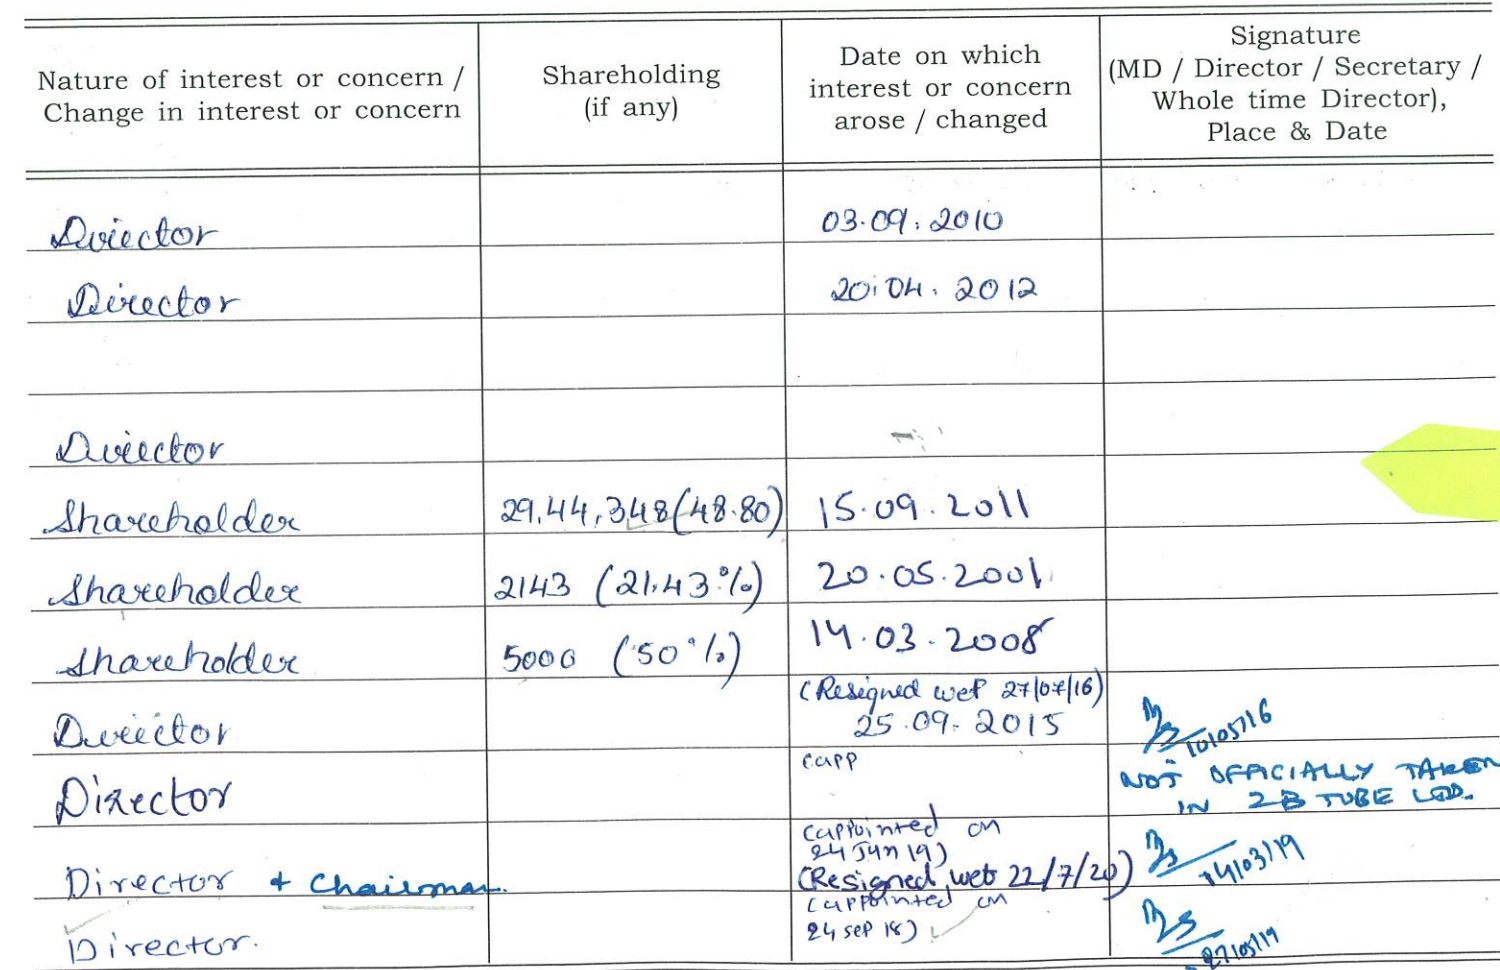 Nature of interest or concern /
Change in interest or concern
Shareholding
(if any)
Date on which
interest or concern
arose / changed
Signature
(MD / Director / Secretary /
Whole time Director),
Place & Date
Director 03.09.2010
Director 20.04.2012
Director
Shareholder 29,44,348(48.80) 15.09.2011
Shareholder 2143 (21.43%) 20.05.2001
Shareholder 5000 (50%) 14.03.2008
(Resigned wef 27/07/16)
Director 25.09.2015 10/05/16
(app
Director
NOT OFFICIALLY TAKEN
IN 2B TUBE LTD.
(appointed on
24 Jun 19)
Director + Chairman. (Resigned wef 22/7/20) 14/03/19
(appointed on
Director. 24 sep 18) 27/05/19